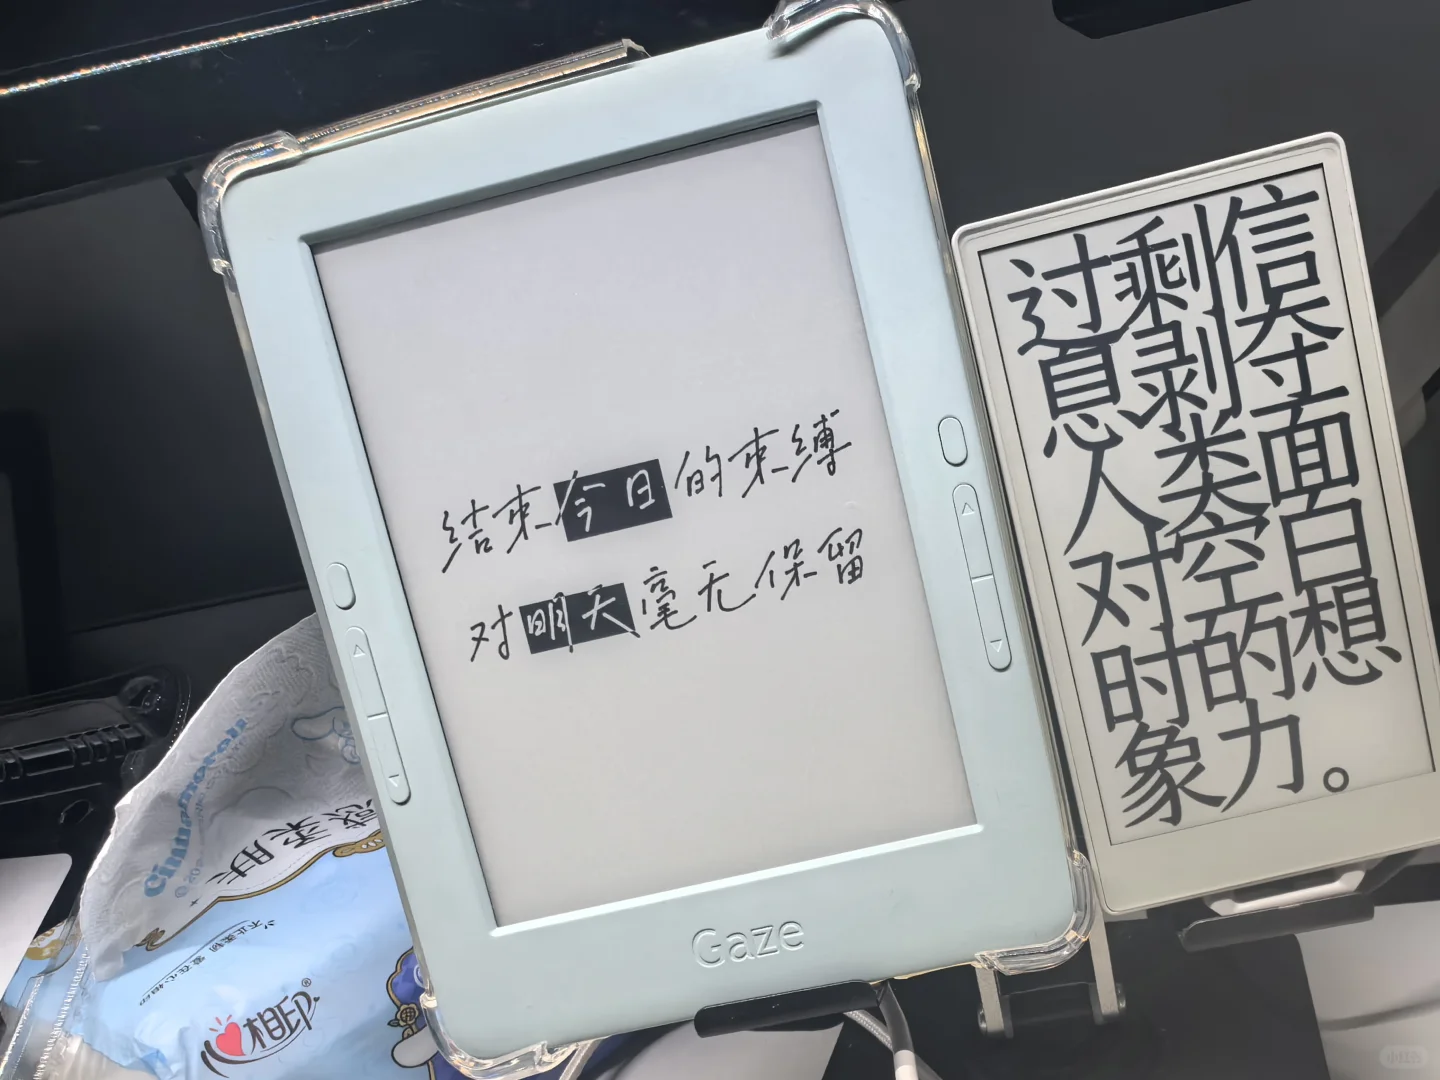 结束今日的束缚
对明天毫无保留
Gaze
过剩信
息剥夺
人类面
对空白
时的想
象力。
Cinnamoroll
肤柔感
相印
®
小红书